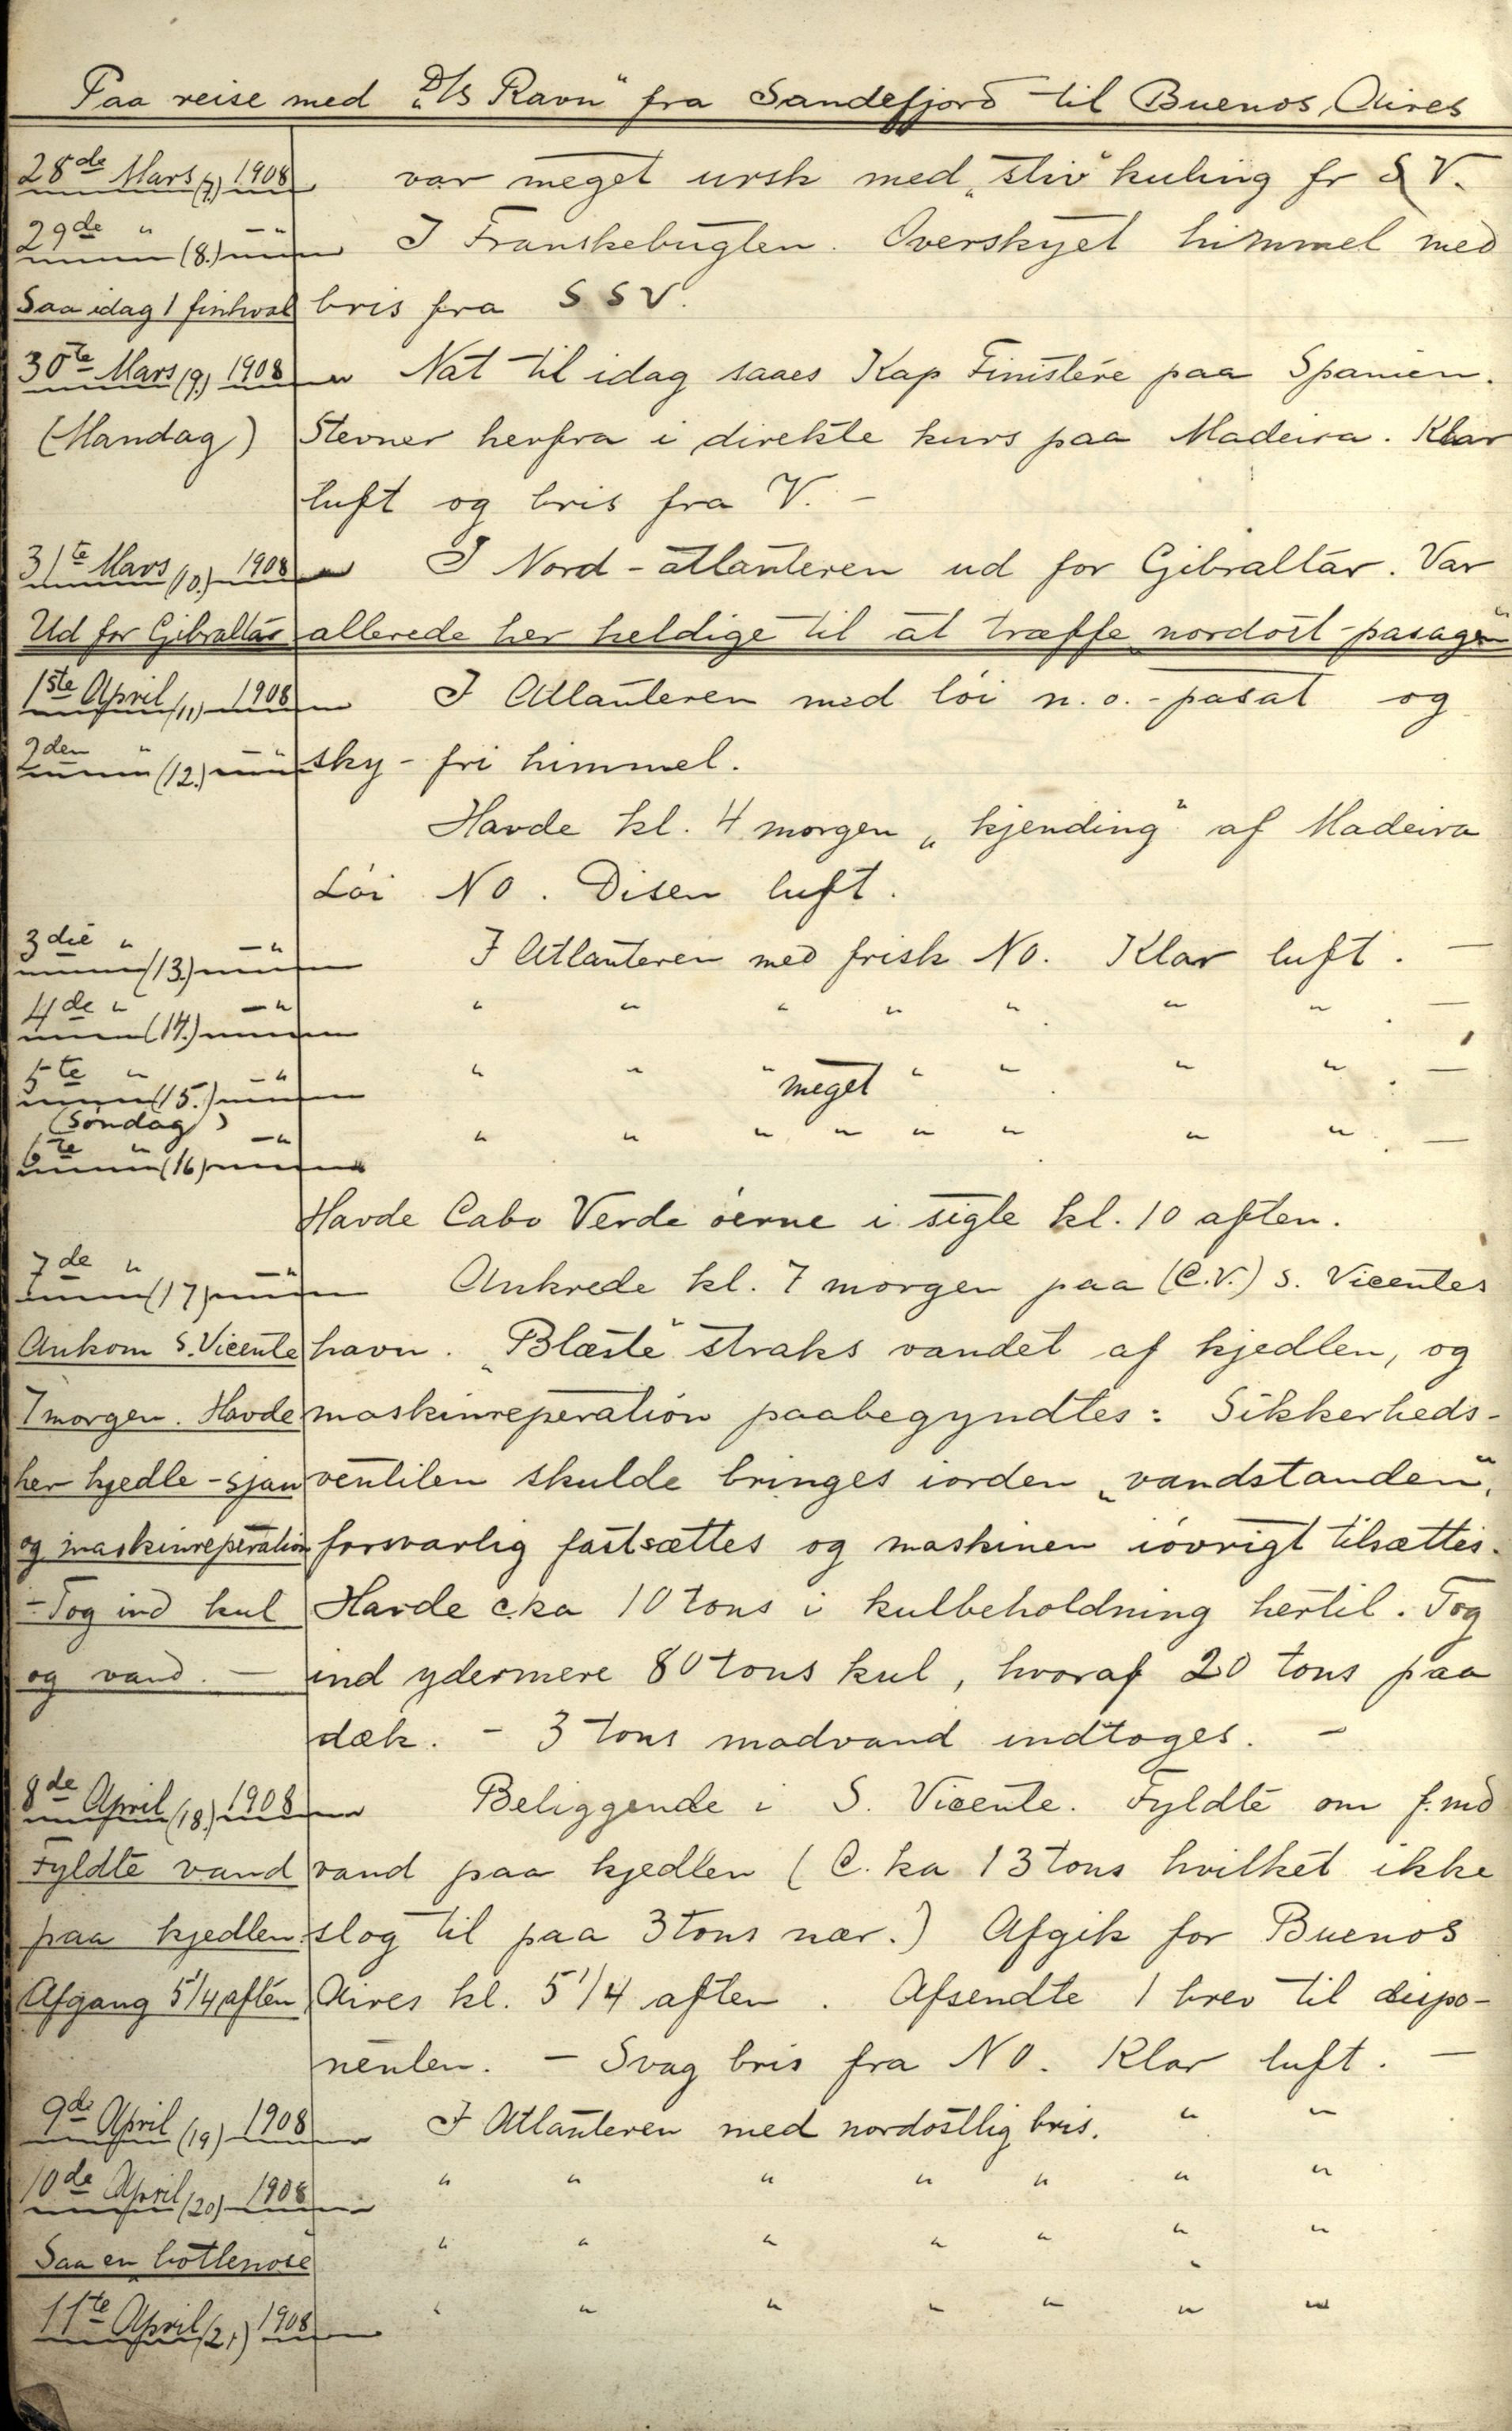 Paa reise med „D/S Ravn“ fra Sandefjord til Buenos Aires
28de Mars (7.) 1908 var meget ursk med „stiv“ kuling fr S V.
29de " (8.) — " I Franskebugten. Overskyet himmel med
Saa idag 1 finhval bris fra S S V.
30te Mars (9.) 1908 Nat til idag saaes Kap Finistére paa Spanien.
(Mandag) Stevner herfra i direkte kurs paa Madeira. Klar
luft og bris fra V. —
31te Mars (10.) 1908 I Nord-atlanteren ud for Gibraltar. Var
Ud for Gibraltar allerede her heldige til at træffe nordost-pasagen"
1ste April (11) 1908 I Atlanteren med löi n. o. - pasat og
2den " (12.) — " sky-fri himmel.
Havde kl. 4 morgen „kjending“ af Madeira
Löi NO. Disen luft.
3die " (13.) — " I Atlanteren med frisk No. Klar luft. —
4de " (14.) — " " " " " " " " . —
5te " (15.) — " " " " meget " " " " . —
(Söndag)
6te " (16) — " " " " " " " " " . —
Havde Cabo Verde öerne i sigte kl. 10 aften.
7de " (17) — " Ankrede kl. 7 morgen paa (C.V.) S. Vicentes
Ankom S. Vicente havn. „Blæste“ straks vandet af kjedlen, og
7 morgen. Havde maskinreperation paabegyndtes: Sikkerheds-
her kjedle-sjau ventilen skulde bringes iorden „vandstanden“,
og maskinreperation forsvarlig fastsættes og maskinen iövrigt tilsættes.
- Tog ind kul Havde c.ka 10 tons i kulbeholdning hertil. Tog
og vand. — ind ydermere 80 tons kul, hvoraf 20 tons paa
dæk. - 3 tons madvand indtoges. —
8de April (18.) 1908 Beliggende i S. Vicente. Fyldte om f.md
Fyldte vand vand paa kjedlen (C.ka 13 tons hvilket ikke
paa kjedlen. slog til paa 3 tons nær.) Afgik for Buenos
Afgang 5 1/4 aften Aires kl. 5 1/4 aften. Afsendte 1 brev til dispo-
nenten. - Svag bris fra NO. Klar luft. —
9de April (19) 1908 I Atlanteren med nordostlig bris. " "
10de April (20) 1908 " " " " " " "
Saa en bottlenose " " " " " " "
11te April (21) 1908 " " " " " " "